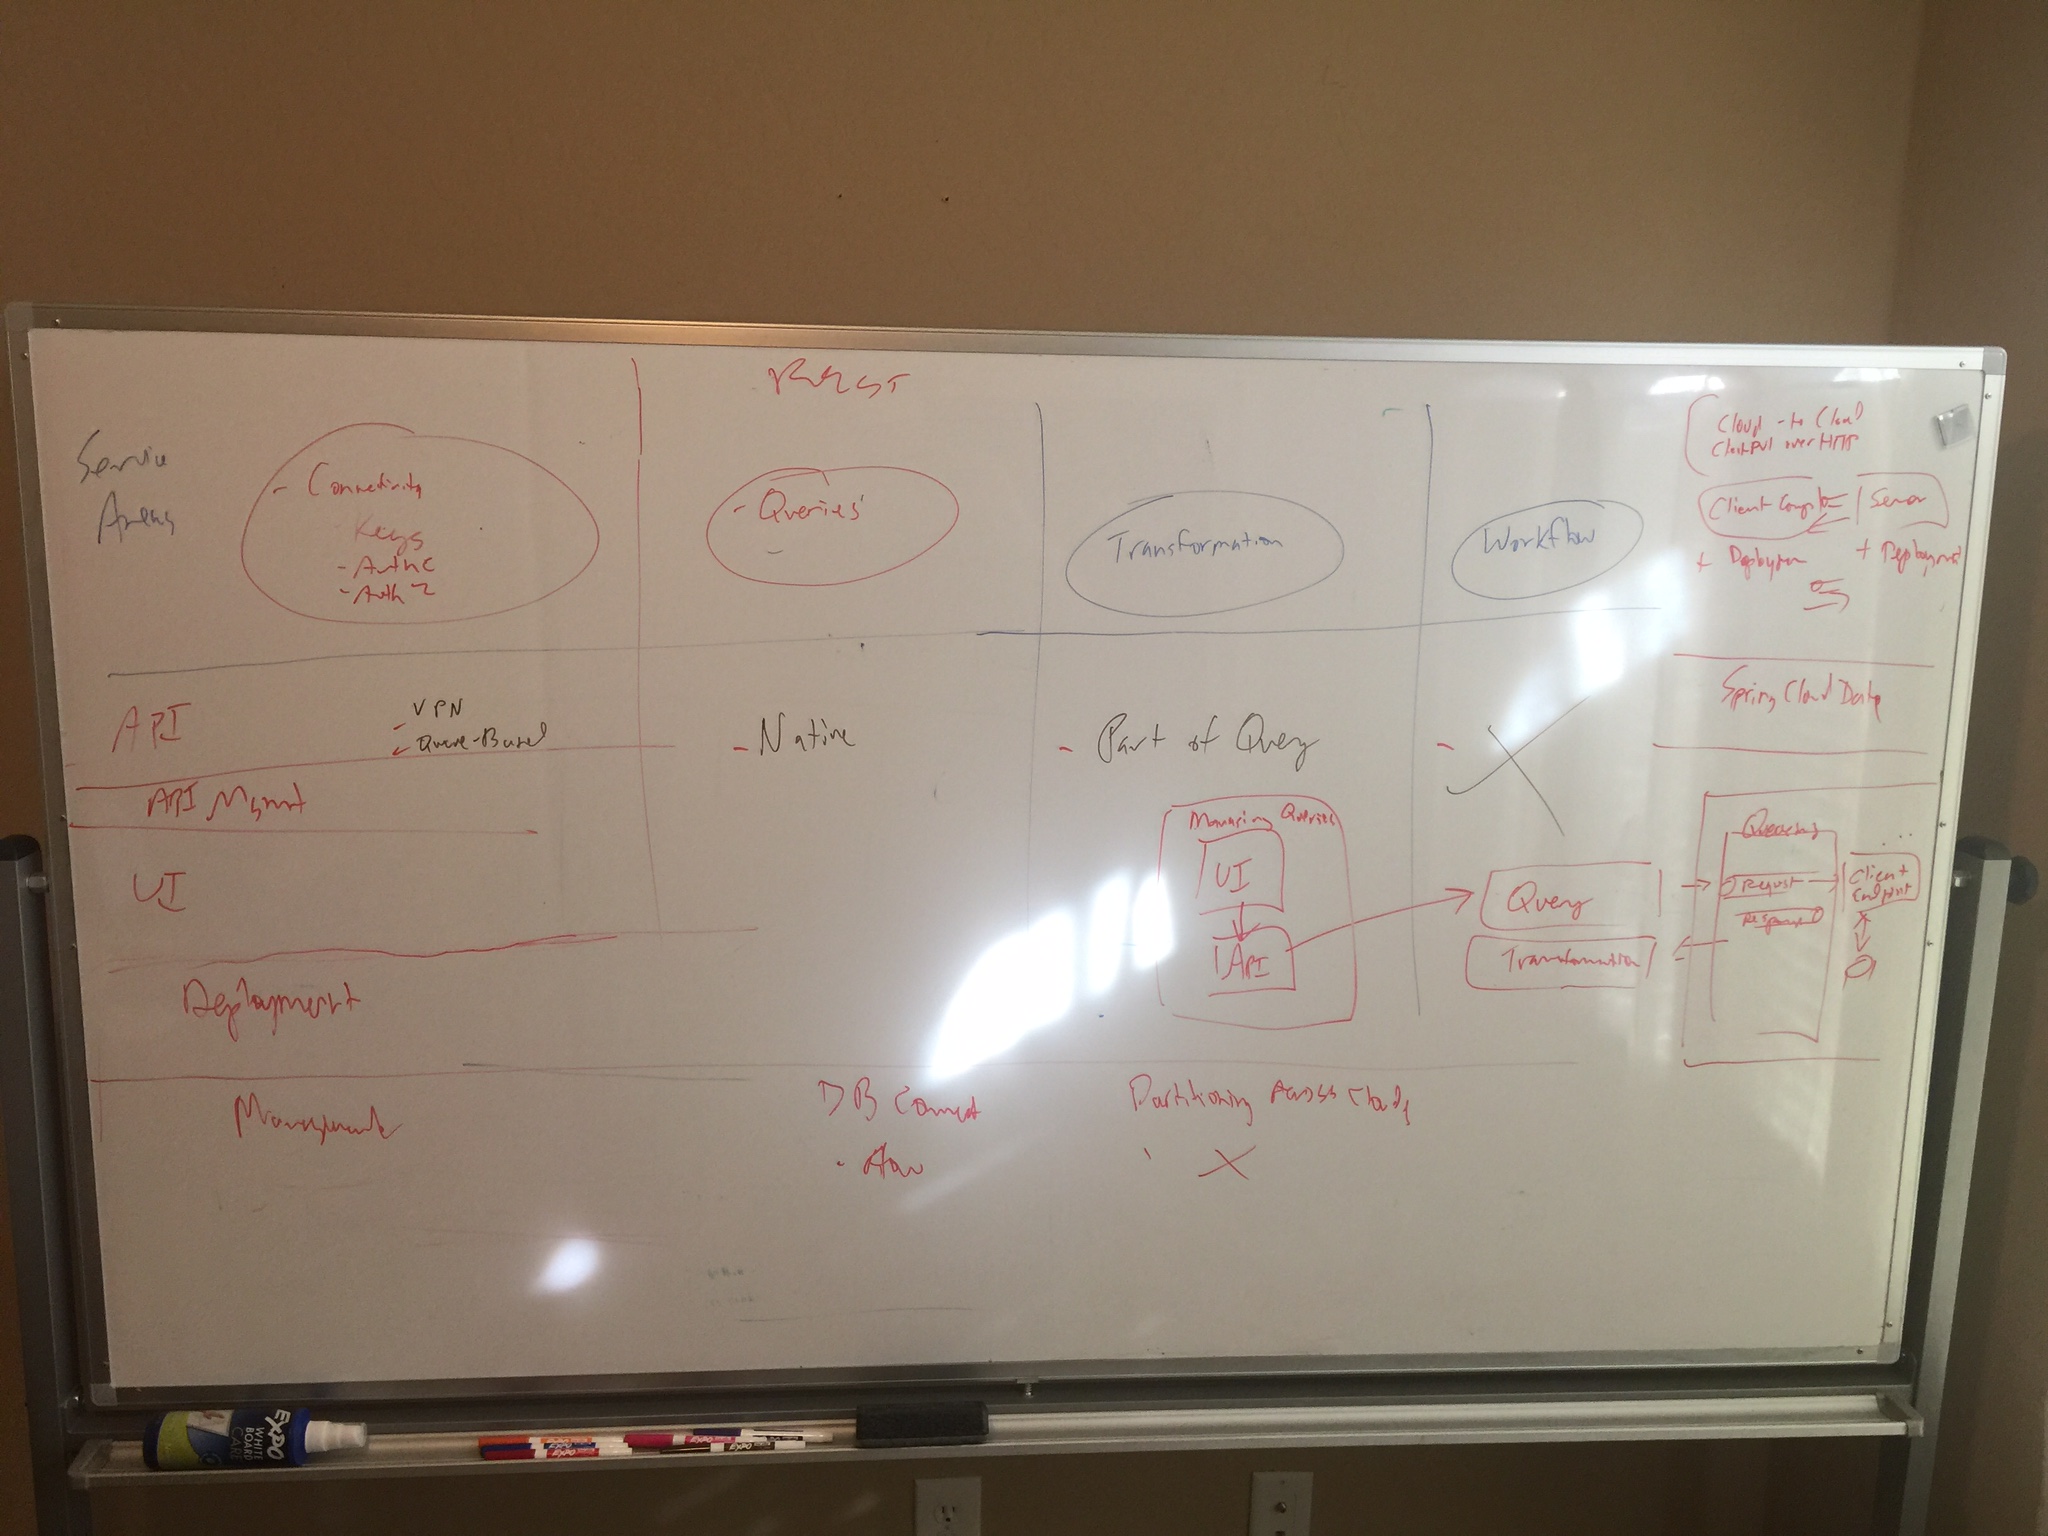 Service
Areas
- Connectivity
Keys
- Authc
- Authz
REST
- Queries
-
Transformation
Workflow
Cloud - to Cloud
over HTTP
Client
Server
+ Deployment
+ Deployment
API
- VPN
- Queue-Based
- Native
- Part of Query
-
Spring Cloud Data
API Mgmnt
UI
Managing Queries
UI
API
Query
Transformation
Queueing
Request
Response
Client
Endpoint
Deployment
Management
DB Connect
Partitioning Across Clouds
X
EXPO
WHITE
BOARD
CARE